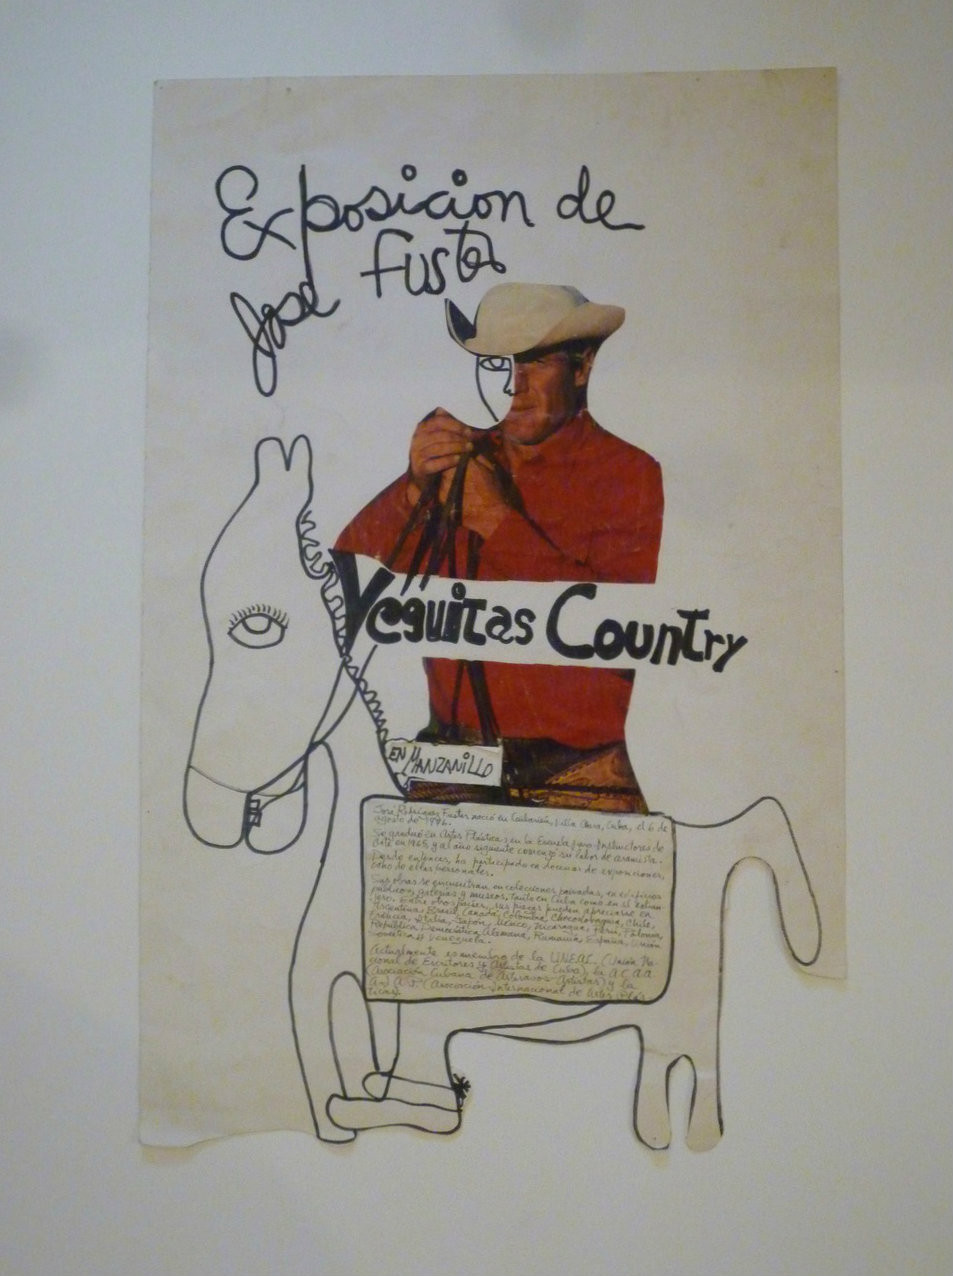 Exposicion de
José Fuster
Veguitas Country
EN MANZANILLO
José Rodríguez Fuster nació en Caibarién, Villa Clara, Cuba, el 6 de
agosto de 1946.
Se graduó en Artes Plásticas en la Escuela para Instructores de
Arte en 1965 y al año siguiente comenzó su labor de ceramista.
Desde entonces, ha participado en docenas de exposiciones,
ocho de ellas personales.
Sus obras se encuentran en colecciones privadas, en edificios
públicos, galerías y museos, tanto en Cuba como en el extran
jero. Entre otros países, sus piezas pueden apreciarse en
Argentina, Brasil, Canadá, Colombia, Checoslovaquia, Chile,
Francia, Italia, Japón, México, Nicaragua, Perú, Polonia,
República Democrática Alemana, Rumania, España, Unión
Soviética y Venezuela.
Actualmente es miembro de la UNEAC, (Unión Na-
cional de Escritores y Artistas de Cuba), la ACAA
(Asociación Cubana de Artesanos Artistas) y la
(Asociación Internacional de Artes Plás
ticas).